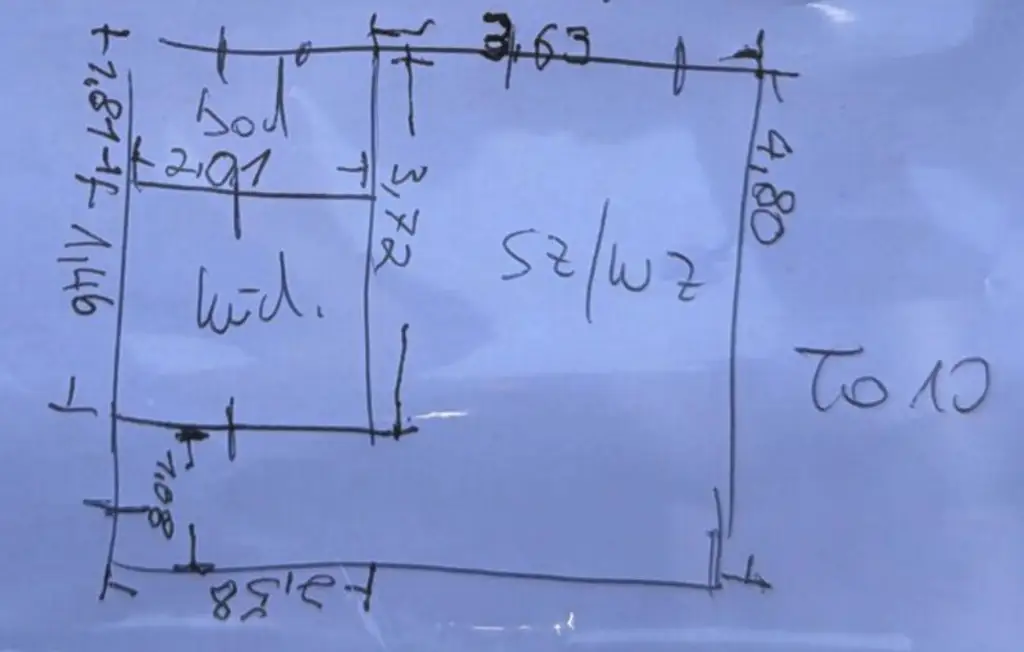 3,63
1,81
Bad
2,01
3,72
4,80
1,46
SZ/WZ
Küch.
To 10
1,08
2,58